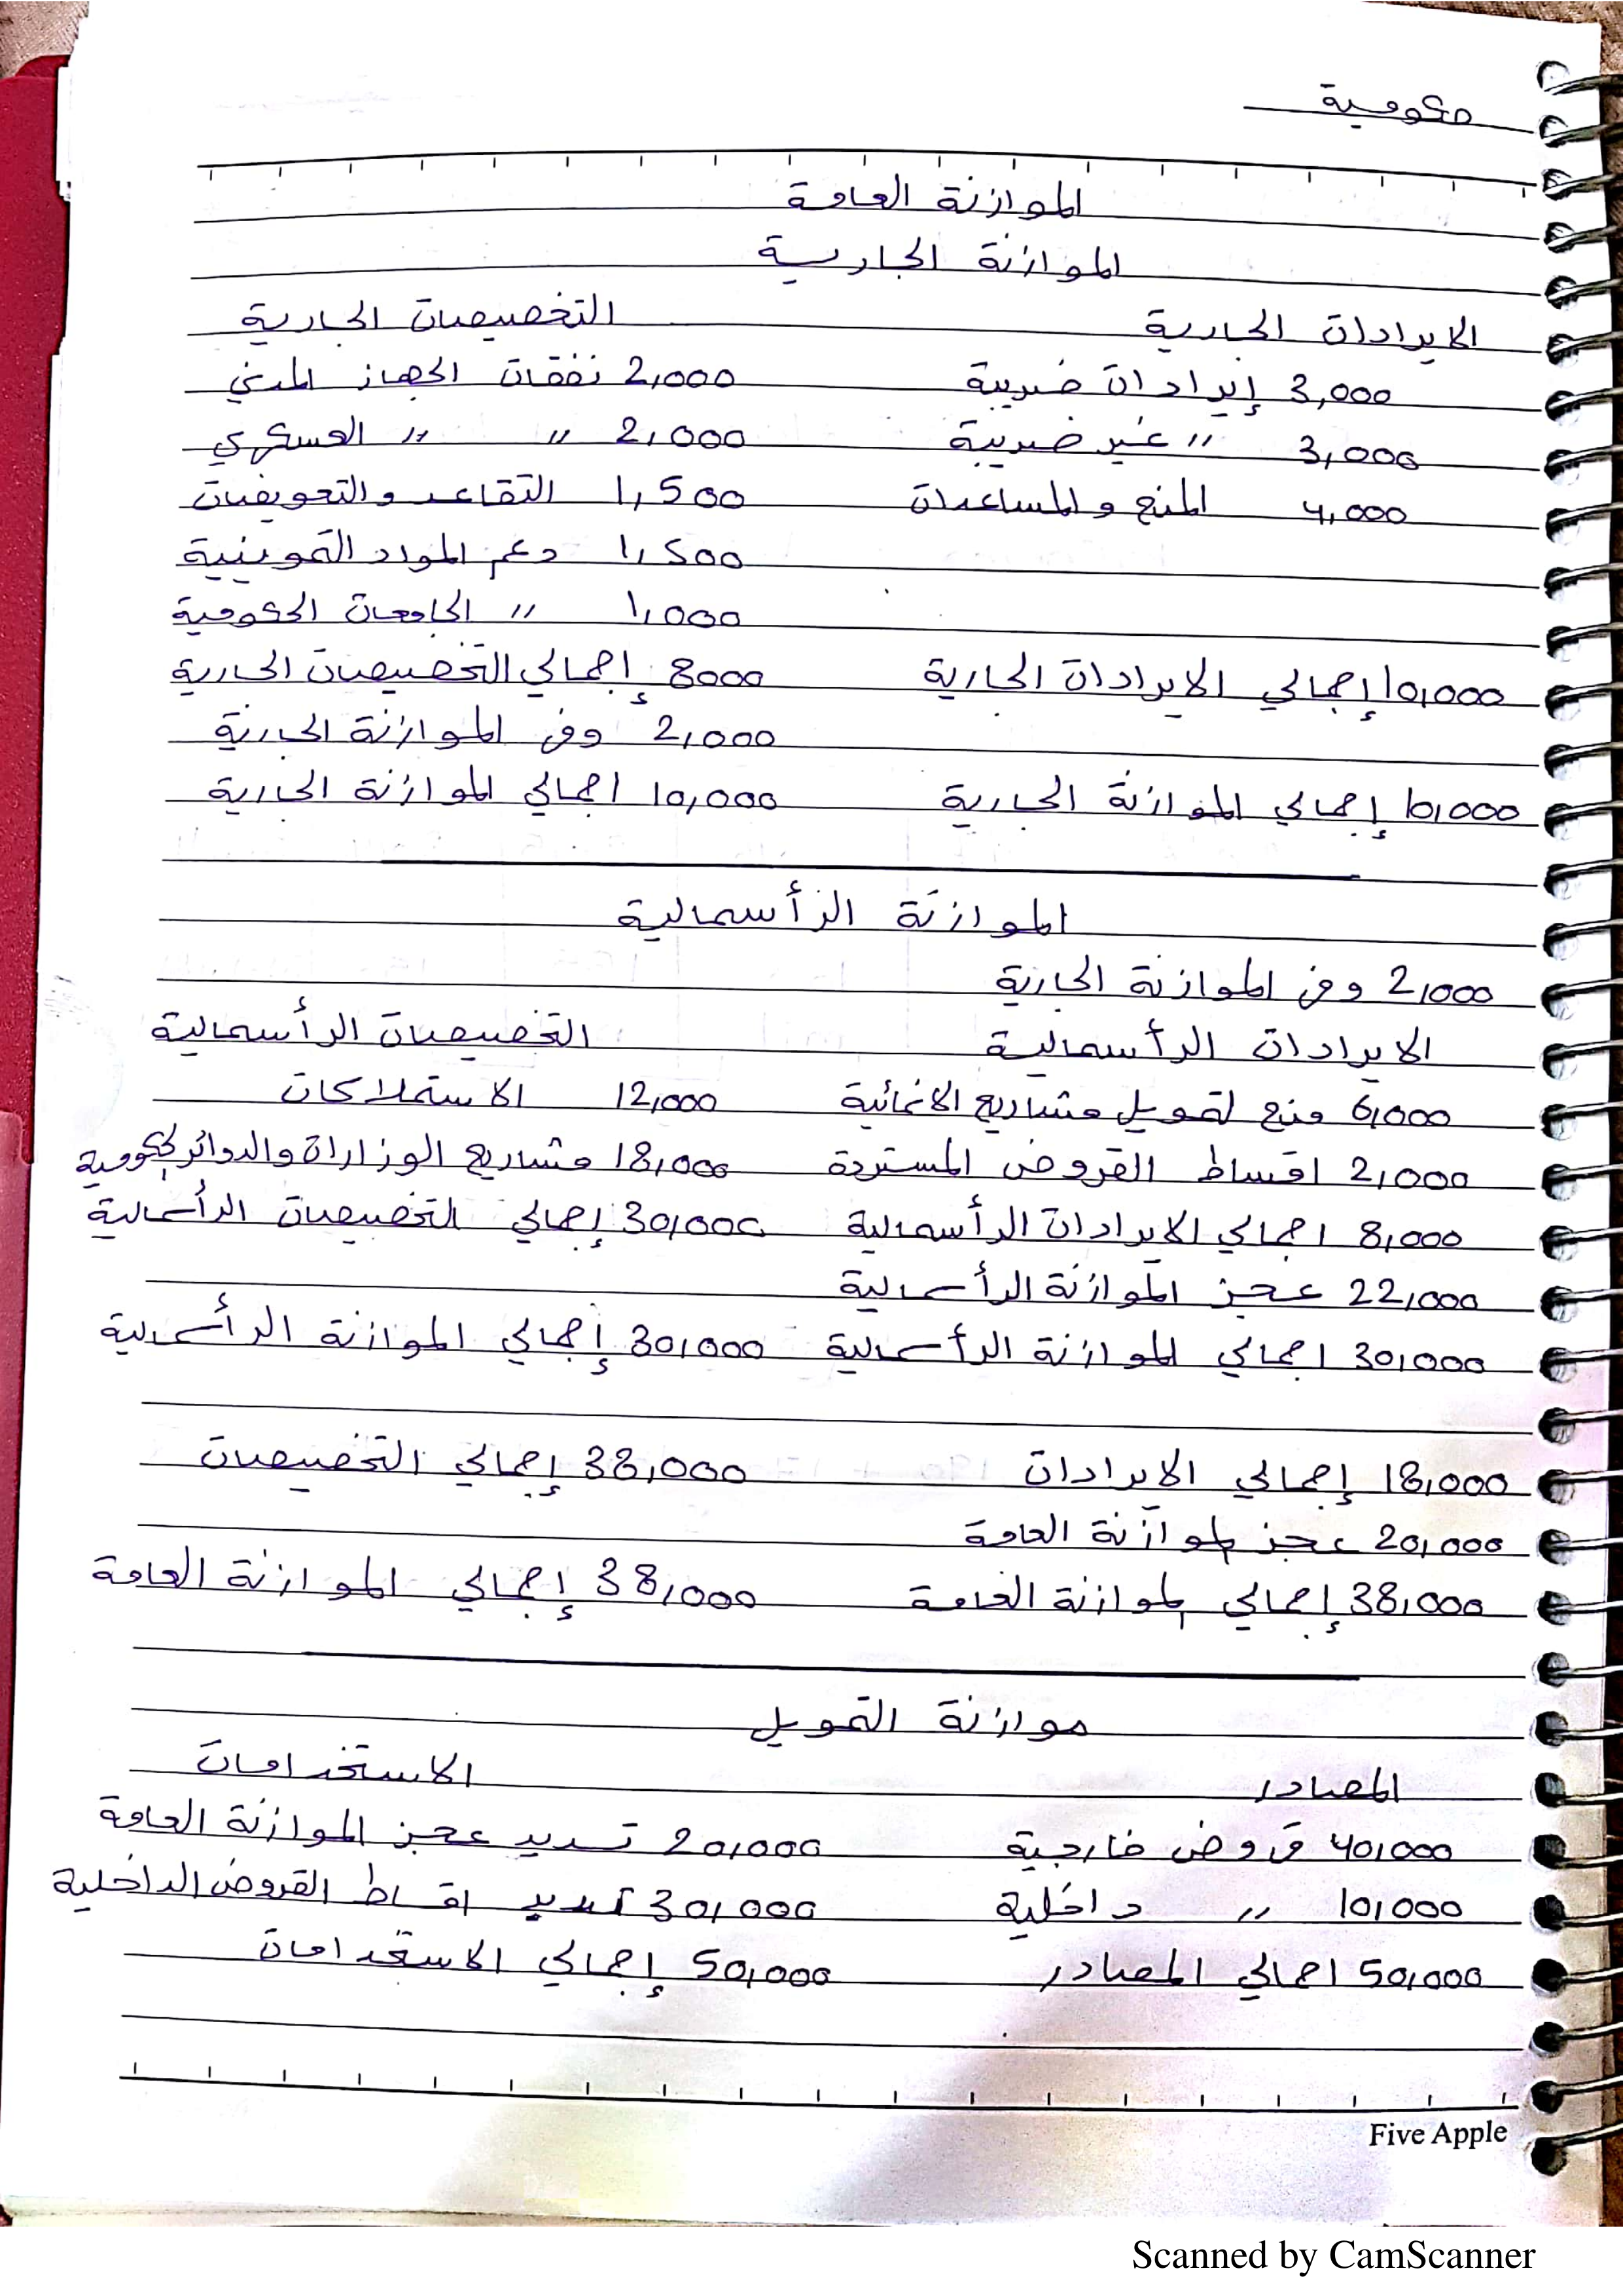 حكومية
الموازنة العامة
الموازنة الجارية
الايرادات الجارية التخصيصات الجارية
3,000 إيرادات ضريبة 2,000 نفقات الجهاز المدني
3,000 〃 غير ضريبة 2,000 〃 〃 العسكري
4,000 المنح والمساعدات 1,500 التقاعد والتعويضات
1,500 دعم المواد التموينية
1,000 〃 الجامعات الحكومية
10,000 إجمالي الايرادات الجارية 8000 إجمالي التخصيصات الجارية
2,000 وفر الموازنة الجارية
10,000 إجمالي الموازنة الجارية 10,000 اجمالي الموازنة الجارية
الموازنة الرأسمالية
2,000 وفر الموازنة الجارية
الايرادات الرأسمالية التخصيصات الرأسمالية
6,000 منح لتمويل مشاريع الانمائية 12,000 الاستملاكات
2,000 اقساط القروض المستردة 18,000 مشاريع الوزارات والدوائر الحكومية
8,000 اجمالي الايرادات الرأسمالية 30,000 إجمالي التخصيصات الرأسمالية
22,000 عجز الموازنة الرأسمالية
30,000 اجمالي الموازنة الرأسمالية 30,000 إجمالي الموازنة الرأسمالية
18,000 إجمالي الايرادات 38,000 إجمالي التخصيصات
20,000 عجز الموازنة العامة
38,000 إجمالي الموازنة العامة 38,000 إجمالي الموازنة العامة
موازنة التمويل
المصادر الاستخدامات
40,000 قروض خارجية 20,000 تسديد عجز الموازنة العامة
10,000 〃 داخلية 30,000 تسديد اقساط القروض الداخلية
50,000 اجمالي المصادر 50,000 إجمالي الاستخدامات
Five Apple
Scanned by CamScanner